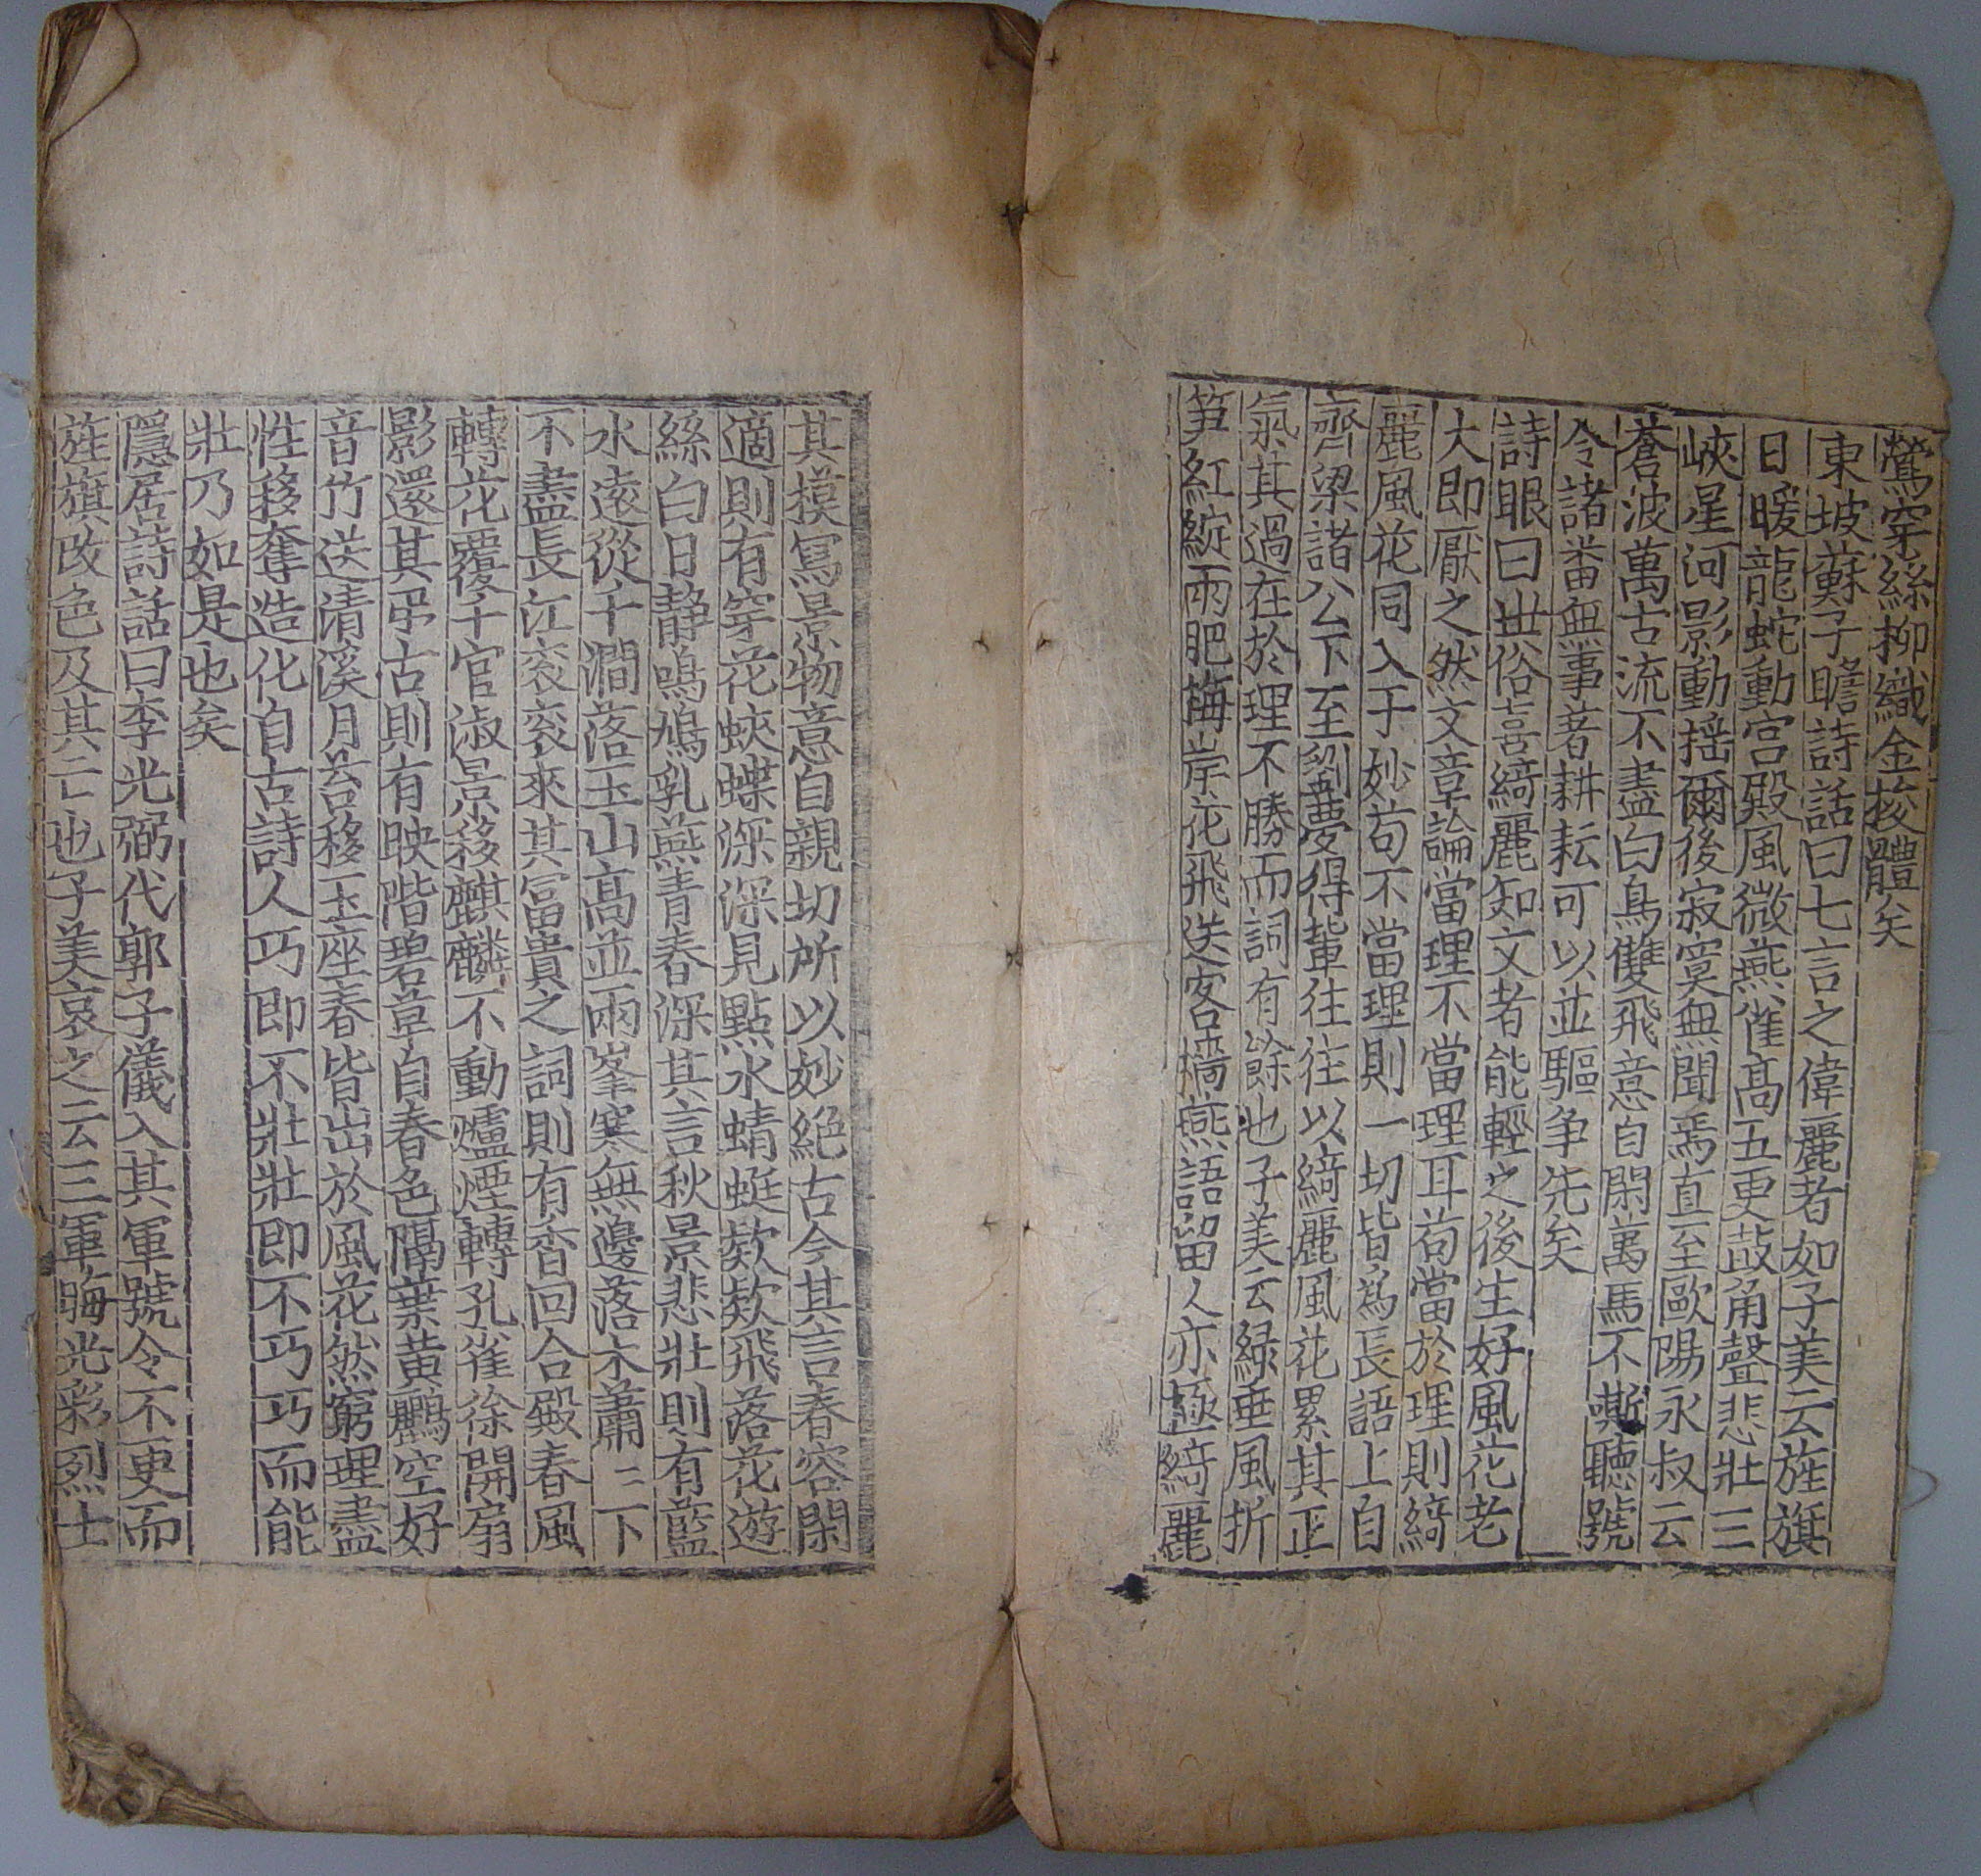 鶯穿絲柳織金梭體矣
東坡蘇子瞻詩話曰七言之偉麗者如子美云旌旗
日暖龍蛇動宮殿風微燕雀高五更鼓角聲悲壯三
峽星河影動搖爾後寂寞無聞焉直至歐陽永叔云
蒼波萬古流不盡白鳥雙飛意自閑萬馬不嘶聽號
令諸番無事著耕耘可以並驅爭先矣
詩眼曰世俗喜綺麗知文者能輕之後生好風花老
大即厭之然文章論當理不當理耳苟當於理則綺
麗風花同入于妙苟不當理則一切皆爲長語上自
齊梁諸公下至劉夢得輩往往以綺麗風花累其正
氣其過在於理不勝而詞有餘也子美云綠垂風折
笋紅綻雨肥梅岸花飛送客檣燕語留人亦極綺麗
其模寫景物意自親切所以妙絕古今其言春容閑
適則有穿花蛺蝶深深見點水蜻蜓欵欵飛落花遊
絲白日靜鳴鳩乳燕青春深其言秋景悲壯則有藍
水遠從千澗落玉山高並兩峯寒無邊落木蕭二下
不盡長江袞袞來其冨貴之詞則有香回合殿春風
轉花覆千官淑景移麒麟不動爐煙轉孔雀徐開扇
影還其弔古則有映階碧草自春色隔葉黃鸝空好
音竹送清溪月苔移玉座春皆出於風花然窮理盡
性移奪造化自古詩人巧即不壯壯即不巧巧而能
壯乃如是也矣
隱居詩話曰李光弼代郭子儀入其軍號令不更而
旌旗改色及其亡也子美哀之云三軍晦光彩烈士